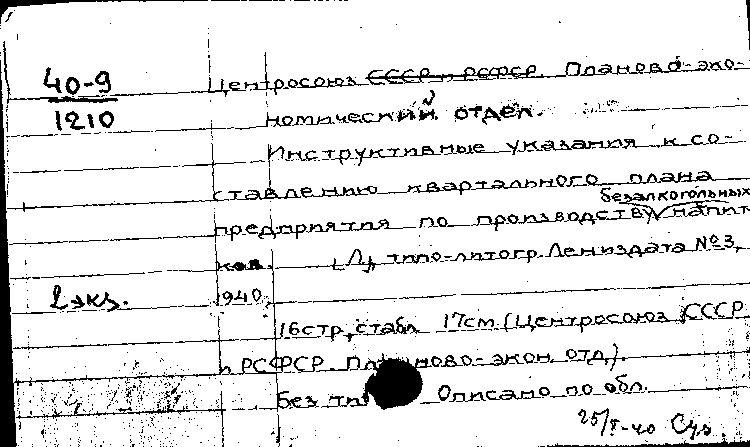 40-9
1210
Центросоюз СССР и РСФСР. Планово-эко-
номический отдел.
Инструктивные указания к со-
ставлению квартального плана
предприятия по производству безалкогольных напит-
ков. [Л], типо-литогр. Лениздата №3,
2 экз. 1940.
16 стр., с табл. 17 см. (Центросоюз СССР
и РСФСР. Планово-экон. отд.).
Без тит. Описано по обл.
25/V-40